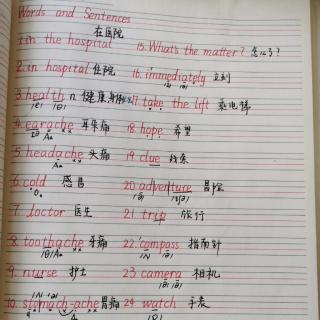 Words and Sentences
1. in the hospital 在医院 15. What's the matter? 怎么了?
2. in hospital 住院 16. immediately 立刻
3. health n 健康,身体 17. take the lift 乘电梯
4. earache 耳朵痛 18. hope 希望
5. headache 头痛 19. clue 线索
6. cold 感冒 20 adventure 冒险
7. doctor 医生 21. trip 旅行
8. toothache 牙痛 22. compass 指南针
9. nurse 护士 23 camera 相机
10. stomach-ache 胃痛 24. watch 手表